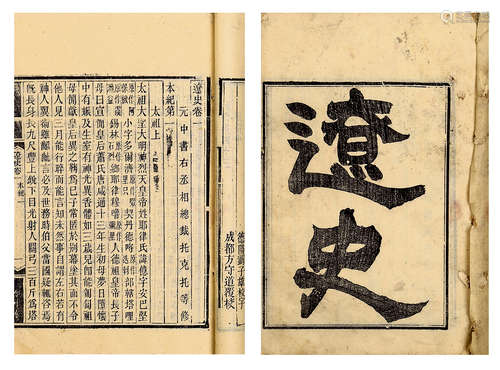 遼史
德陽劉子雄校字
成都方守道覆校
遼史卷一
元中書右丞相總裁托克托等修
本紀第一
太祖上
太祖大聖大明神烈天皇帝姓耶律氏諱億字安巴堅
小字多爾濟 契丹 部
錫林 人德祖皇帝長子
母曰宣簡皇后蕭氏唐咸通十三年生初母夢日墮懷
中有娠及生室有神光異香體如三歲兒即能匍匐祖
母簡獻皇后異之鞠為己子常匿於別幕塗其面不令
他人見三月能行晬而能言知未然事自謂左右若有
神人翼衛雖齠齔言必及世務時伯父當國疑輒咨焉
既長身長九尺豐上銳下目光射人關弓三百斤為塔
遼史卷一 本紀一